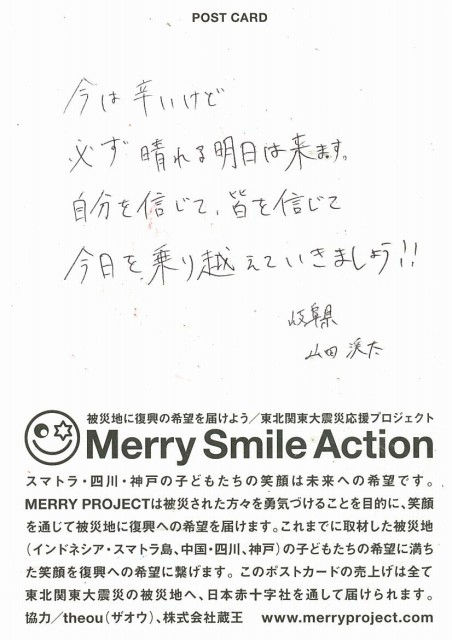 POST CARD
今は辛いけど
必ず晴れる明日は来ます。
自分を信じて、皆を信じて
今日を乗り越えていきましょう!!
岐阜県
山田 渓太
被災地に復興の希望を届けよう/東北関東大震災応援プロジェクト
Merry Smile Action
スマトラ・四川・神戸の子どもたちの笑顔は未来への希望です。
MERRY PROJECTは被災された方々を勇気づけることを目的に、笑顔
を通じて被災地に復興への希望を届けます。これまでに取材した被災地
(インドネシア・スマトラ島、中国・四川、神戸)の子どもたちの希望に満ち
た笑顔を復興への希望に繋げます。このポストカードの売上げは全て
東北関東大震災の被災地へ、日本赤十字社を通して届けられます。
協力/theou(ザオウ)、株式会社蔵王 www.merryproject.com